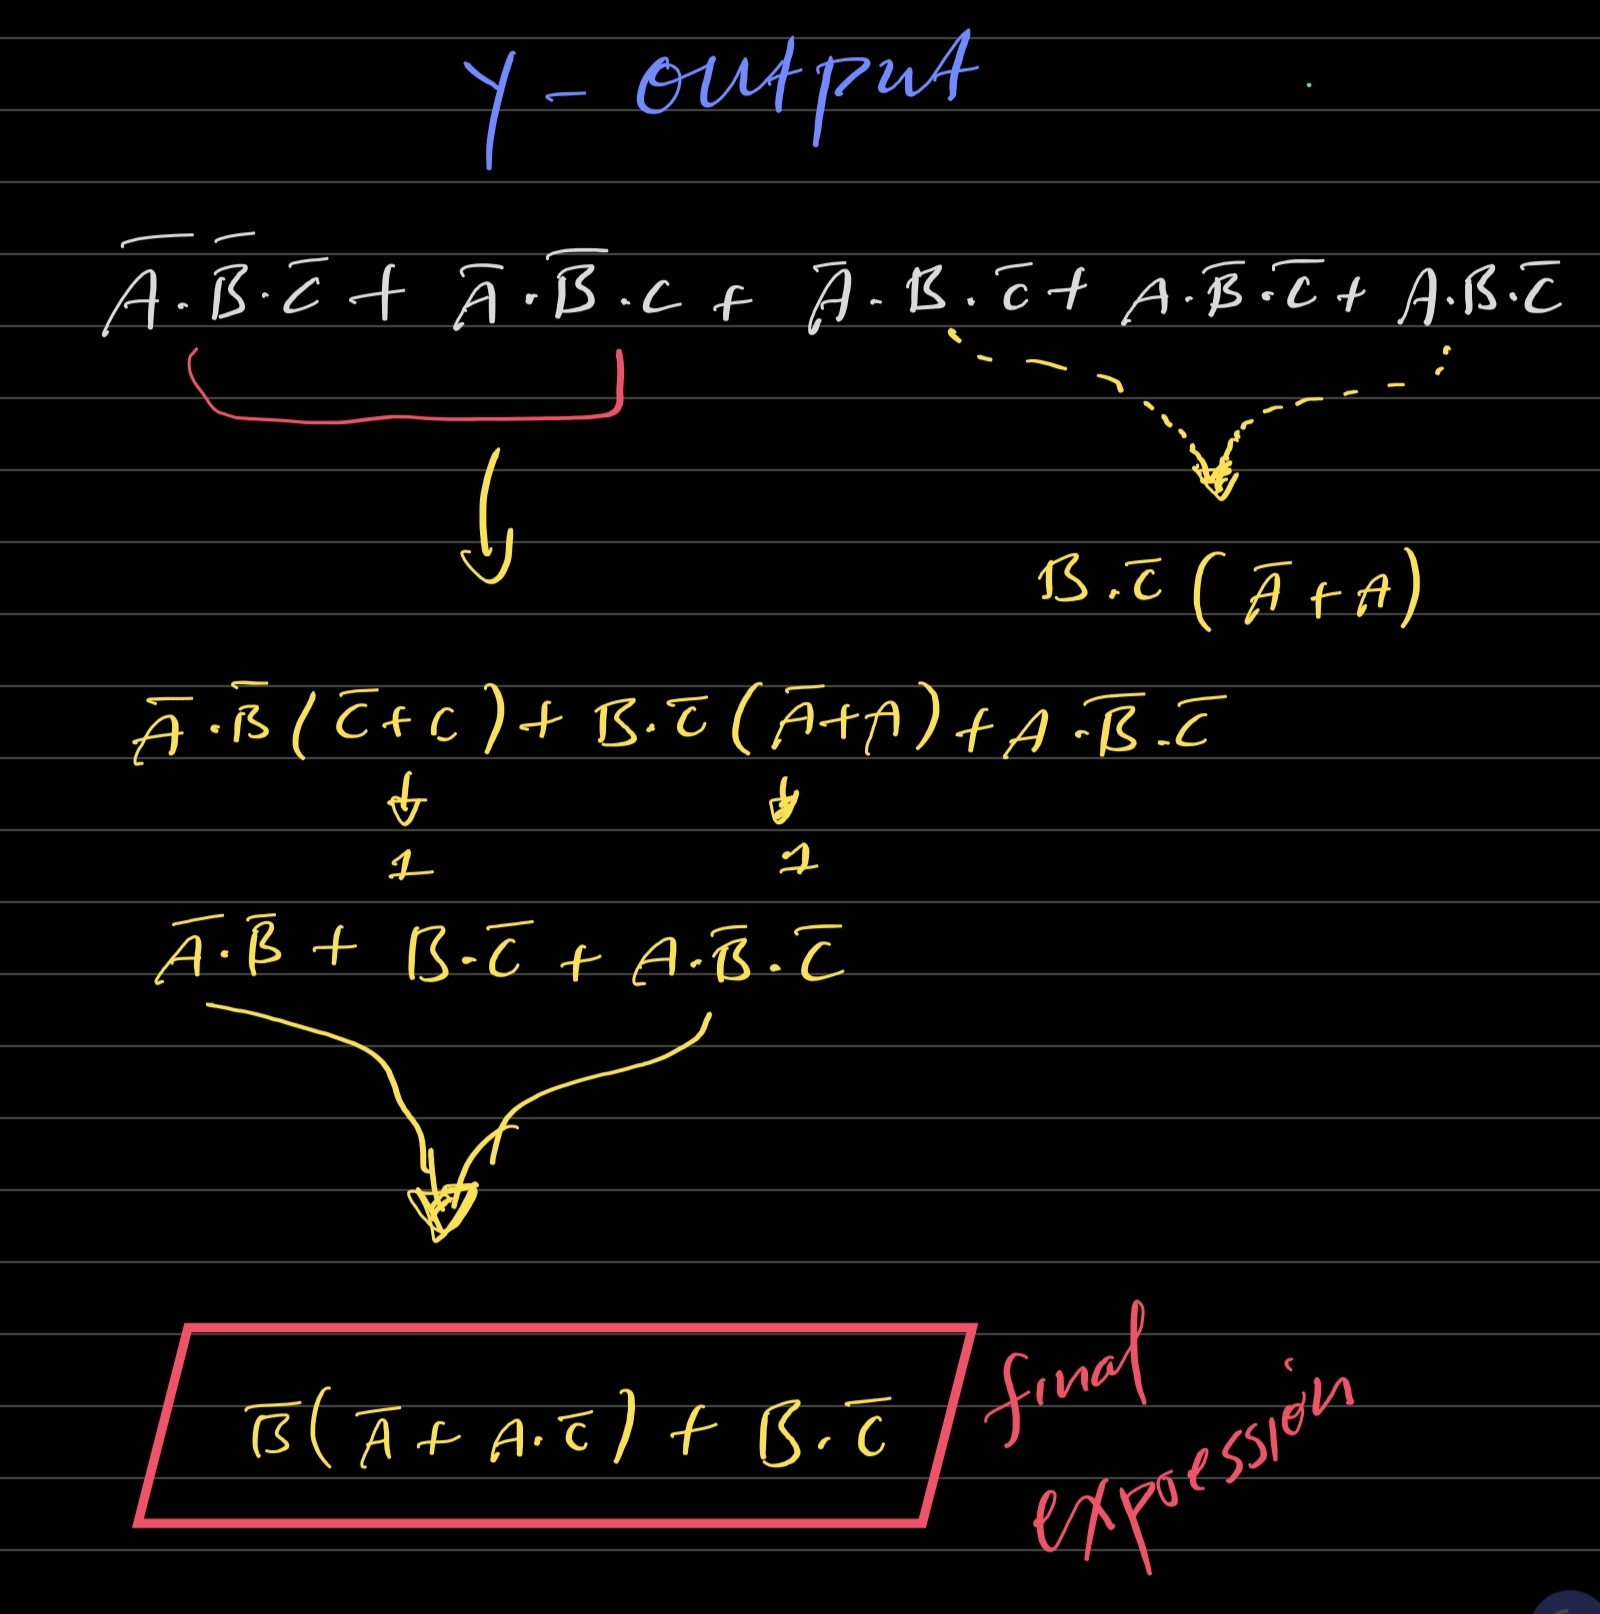 Y - output
A̅.B̅.C̅ + A̅.B̅.C + A̅.B.C̅ + A.B̅.C̅ + A.B.C̅
B.C̅ (A̅ + A)
A̅.B̅ (C̅ + C) + B.C̅ (A̅ + A) + A.B̅.C̅
1 1
A̅.B̅ + B.C̅ + A.B̅.C̅
B̅(A̅ + A.C̅) + B.C̅
final
expression